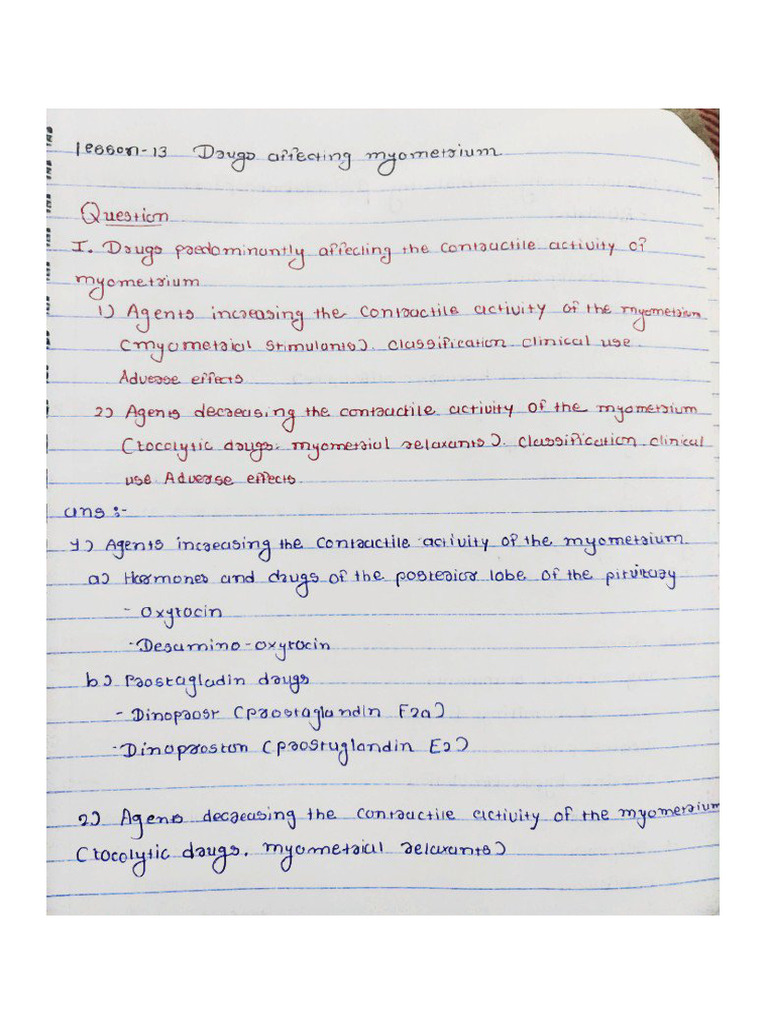 Lesson-13 Drugs affecting myometrium
Question
I. Drugs predominantly affecting the contractile activity of
myometrium
1) Agents increasing the contractile activity of the myometrium
(myometrial stimulants). classification. clinical use.
Adverse effects
2) Agents decreasing the contractile activity of the myometrium
(tocolytic drugs. myometrial relaxants). classification. clinical
use. Adverse effects.
ans :-
1) Agents increasing the contractile activity of the myometrium.
a) Hormones and drugs of the posterior lobe of the pituitary
- Oxytocin
- Desamino-oxytocin
b) Prostagladin drugs
- Dinoprost (prostaglandin F2a)
- Dinoproston (prostaglandin E2)
2) Agens decreasing the contractile activity of the myometrium
(tocolytic drugs. myometrial relaxants)